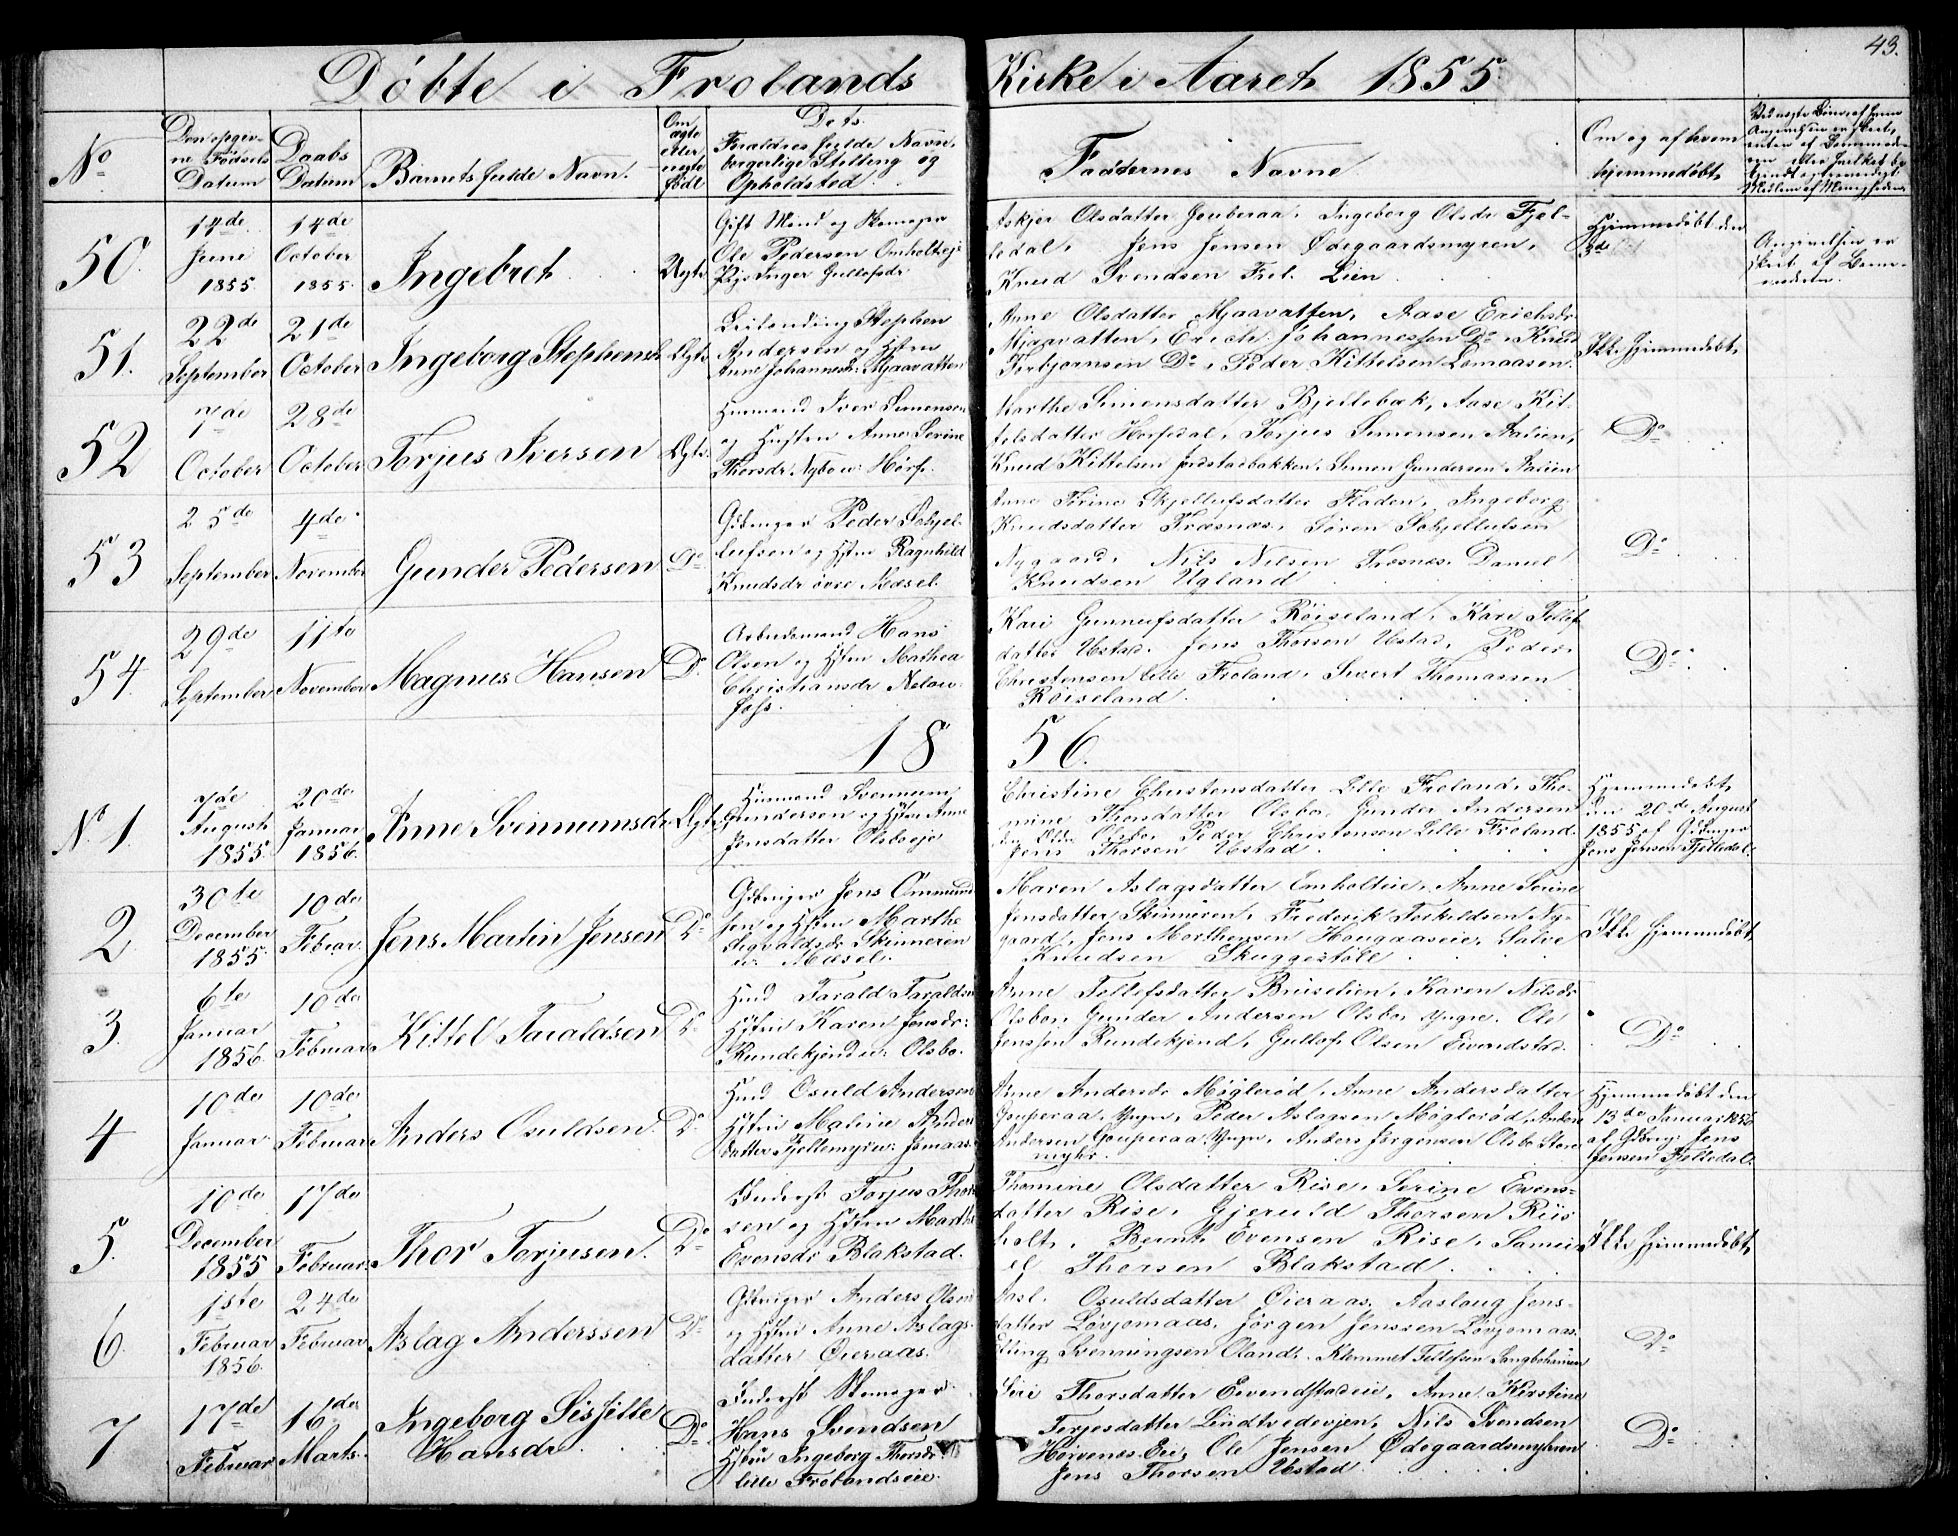 43.
Döbte i Frolands Kirke i Aaret 1855.
No
Den opgivne Födsels Datum
Daabs Datum
Barnets fulde Navn.
Om ægte eller uægte född
Dets Forældres fulde Navn, borgerlige Stilling og Opholdsted.
Faddernes Navne
Om og af hvem hjemmedöbt,
50.
14de Juni 1855.
14de October 1855.
Ingebret
Uægte
Gift Mand og Skomager
Ole Pedersen Omholtej:
Pige Inger Gullofsdr
Askjer Olsdatter Gouberaa, Ingeborg Olsdr Fjel-
ledal, Jens Jensen Ödegaardsmyren,
Knud Svendsen Frel. Lien
Hjemmedöbt den
Angivelsen er
skeet af Barne-
moderen.
51.
22de September
21de October
Ingeborg Stephensdr
Ægte
Leilending Stephen
Andersen og Hstru
Anne Johannesdr: Mjaavatten
Anne Olsdatter Mjaavatten, Aase Erichsdr
Mjaavatten, Erich Johannessen Do, Knud
Torbjørnsen Do, Peder Kittelsen Lomaasen.
Ikke hjemmedöbt,
52
7de October
28de October
Torjus Iversen
Ægte
Huusmand Iver Simonsen
og Hustru Anne Serine
Thorsdr. Nybou: Hörf.
Marthe Simensdatter Bjellebæk, Aase Kit-
telsdatter Horfedal, Torjus Simensen Aalien,
Knud Kittelsen Jordstadbakken, Simon Gundersen Aalien
Do
53
25de September
4de November
Gunder Pedersen
Do
Gbruger Peder Schjel-
lufsen og Hstru Ragnhild
Knudsdr övre Mæsel.
Anne Törine Skjellufsdatter Floden, Ingeborg
Knudsdatter Træsnæs, Tören Schjellufsen
Nygaard, Nils Nilsen Træsnæs, Daniel
Knudsen Ugland
Do
54.
29de September
11te November
Magnus Hansen
Do
Arbudsmand Hans
Olsen og Hstru Mathea
Christiansdr Nelau-
foss.
Kari Gunnufsdatter Röiseland, Kari Tellef-
datter Ustad, Jens Thorsen Ustad, Peder
Christensen Lille Froland, Sivert Thomassen
Röiseland.
Do
1856.
No 1.
7de August 1855.
20de Januar 1856.
Anne Svennumsdr
Ægte
Huusmand Svennum
Gundersen og Hstru Anne
Jensdatter Olsboeje
Christine Christensdatter Lille Froland, Tho-
mine Thorsdatter Olsbo, Gunder Andersen
Olsbo, Peder Christensen Lille Froland.
Jens Thorsen Ustad
Hjemmedöbt
den 20de August
1855 af Gbruger
Jens Jensen Fjelledal.
2
30te December 1855.
10de Febuar.
Jens Martin Jensen
Do
Gbruger Jens Ommund
sen og Hstru Marthe
Sigvaldsdr Skinneren
u: Mæsel.
Maren Aslagsdatter Emholteie, Anne Serine
Jensdatter Skinneren, Frederik Torkeldsen Ny-
gaard, Jens Morthensen Hougaaseie, Salve
Knudsen Skuggestöll
Ikke hjemmedöbt,
3.
6te Januar 1856.
10de Februar.
Kittel Taraldsen
Do
Hmd Tarald Taraldsen
Hstru Karen Jensdr:
Rundekjøndu: Olsbo.
Anne Tellefsdatter Bruselien, Karen Nilsdr
Olsbo, Gunder Andersen Olsbo yngre, Ole
Jenssen Rundekjønd, Gullof Olsen Eivendstad.
Do
4
10de Januar
10de Februar
Anders Osuldsen.
Do
Hmd Osuld Andersen
Hstru Maline Anders
datter Fjellemyren: Jomaas.
Anne Andersdr Möglerød, Anne Andersdatter
Gouperaa, Yngre, Peder Aslagsen Möglerød, Anders
Andersen Gouperaa Yngre, Anders Jørgensen Olsbo Store
myhr.
Hjemmedöbt den
13de Januar 1856
af Gbrug: Jens
Jensen Fjelledal.
5.
10de December 1855
17de Februar.
Thor Torjusen.
Do
Inderst Torjus Thor
sen og Hstru Marthe
Evensdr Blakstad.
Thomine Olsdatter Rise, Serine Evens-
datter Rise, Gjeruld Thorsen Riis
holt, Bernt Evensen Rise, Samu-
el Thorsen Blakstad.
Ikke hjemmedöbt,
6.
1ste Februar 1856.
24de Februar
Aslag Anderssen
Do
Gbruger Anders Olsen
og Hstru Anne Aslags-
datter Öieraas.
Aasl. Osuldsdatter Öieraas, Aaslaug Jens-
datter Lövjomaas, Jörgen Jenssen Lövjomaas,
Elling Svenningsen Oland, Klemmet Tellefsen
Do
7
17de Februar
16de Marts.
Ingeborg Sissille
Hansdr
Do
Inderst Skomager
Hans Svendsen
Hstru Ingeborg Thorsdr.
lille Frolandseie.
Siri Thorsdatter Eivendstadeie, Anne Kirstine
Terjesdatter Lindtvedevjen, Nils Svendsen
Hörvenes Eie, Ole Jensen Ödegaardsmyhren
Jens Thorsen Ustad.
Do